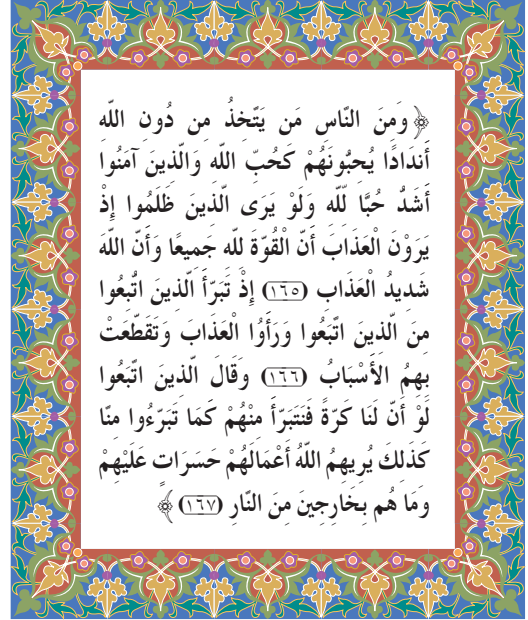 ﴿وَمِنَ النَّاسِ مَن يَتَّخِذُ مِن دُونِ اللّهِ
أَندَادًا يُحِبُّونَهُمْ كَحُبِّ اللّهِ وَالَّذِينَ آمَنُوا
أَشَدُّ حُبًّا لِّلّهِ وَلَوْ يَرَى الَّذِينَ ظَلَمُوا إِذْ
يَرَوْنَ الْعَذَابَ أَنَّ الْقُوَّةَ لِلّهِ جَمِيعًا وَأَنَّ اللّهَ
شَدِيدُ الْعَذَابِ (١٦٥) إِذْ تَبَرَّأَ الَّذِينَ اتُّبِعُوا
مِنَ الَّذِينَ اتَّبَعُوا وَرَأَوُا الْعَذَابَ وَتَقَطَّعَتْ
بِهِمُ الأَسْبَابُ (١٦٦) وَقَالَ الَّذِينَ اتَّبَعُوا
لَوْ أَنَّ لَنَا كَرَّةً فَنَتَبَرَّأَ مِنْهُمْ كَمَا تَبَرَّءُوا مِنَّا
كَذَلِكَ يُرِيهِمُ اللّهُ أَعْمَالَهُمْ حَسَرَاتٍ عَلَيْهِمْ
وَمَا هُم بِخَارِجِينَ مِنَ النَّارِ (١٦٧)﴾